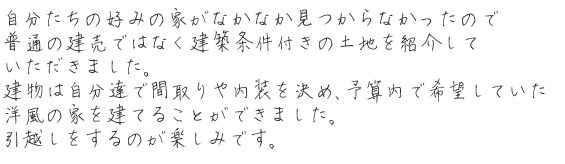 自分たちの好みの家がなかなか見つからなかったので
普通の建売ではなく建築条件付きの土地を紹介して
いただきました。
建物は自分達で間取りや内装を決め、予算内で希望していた
洋風の家を建てることができました。
引越しをするのが楽しみです。